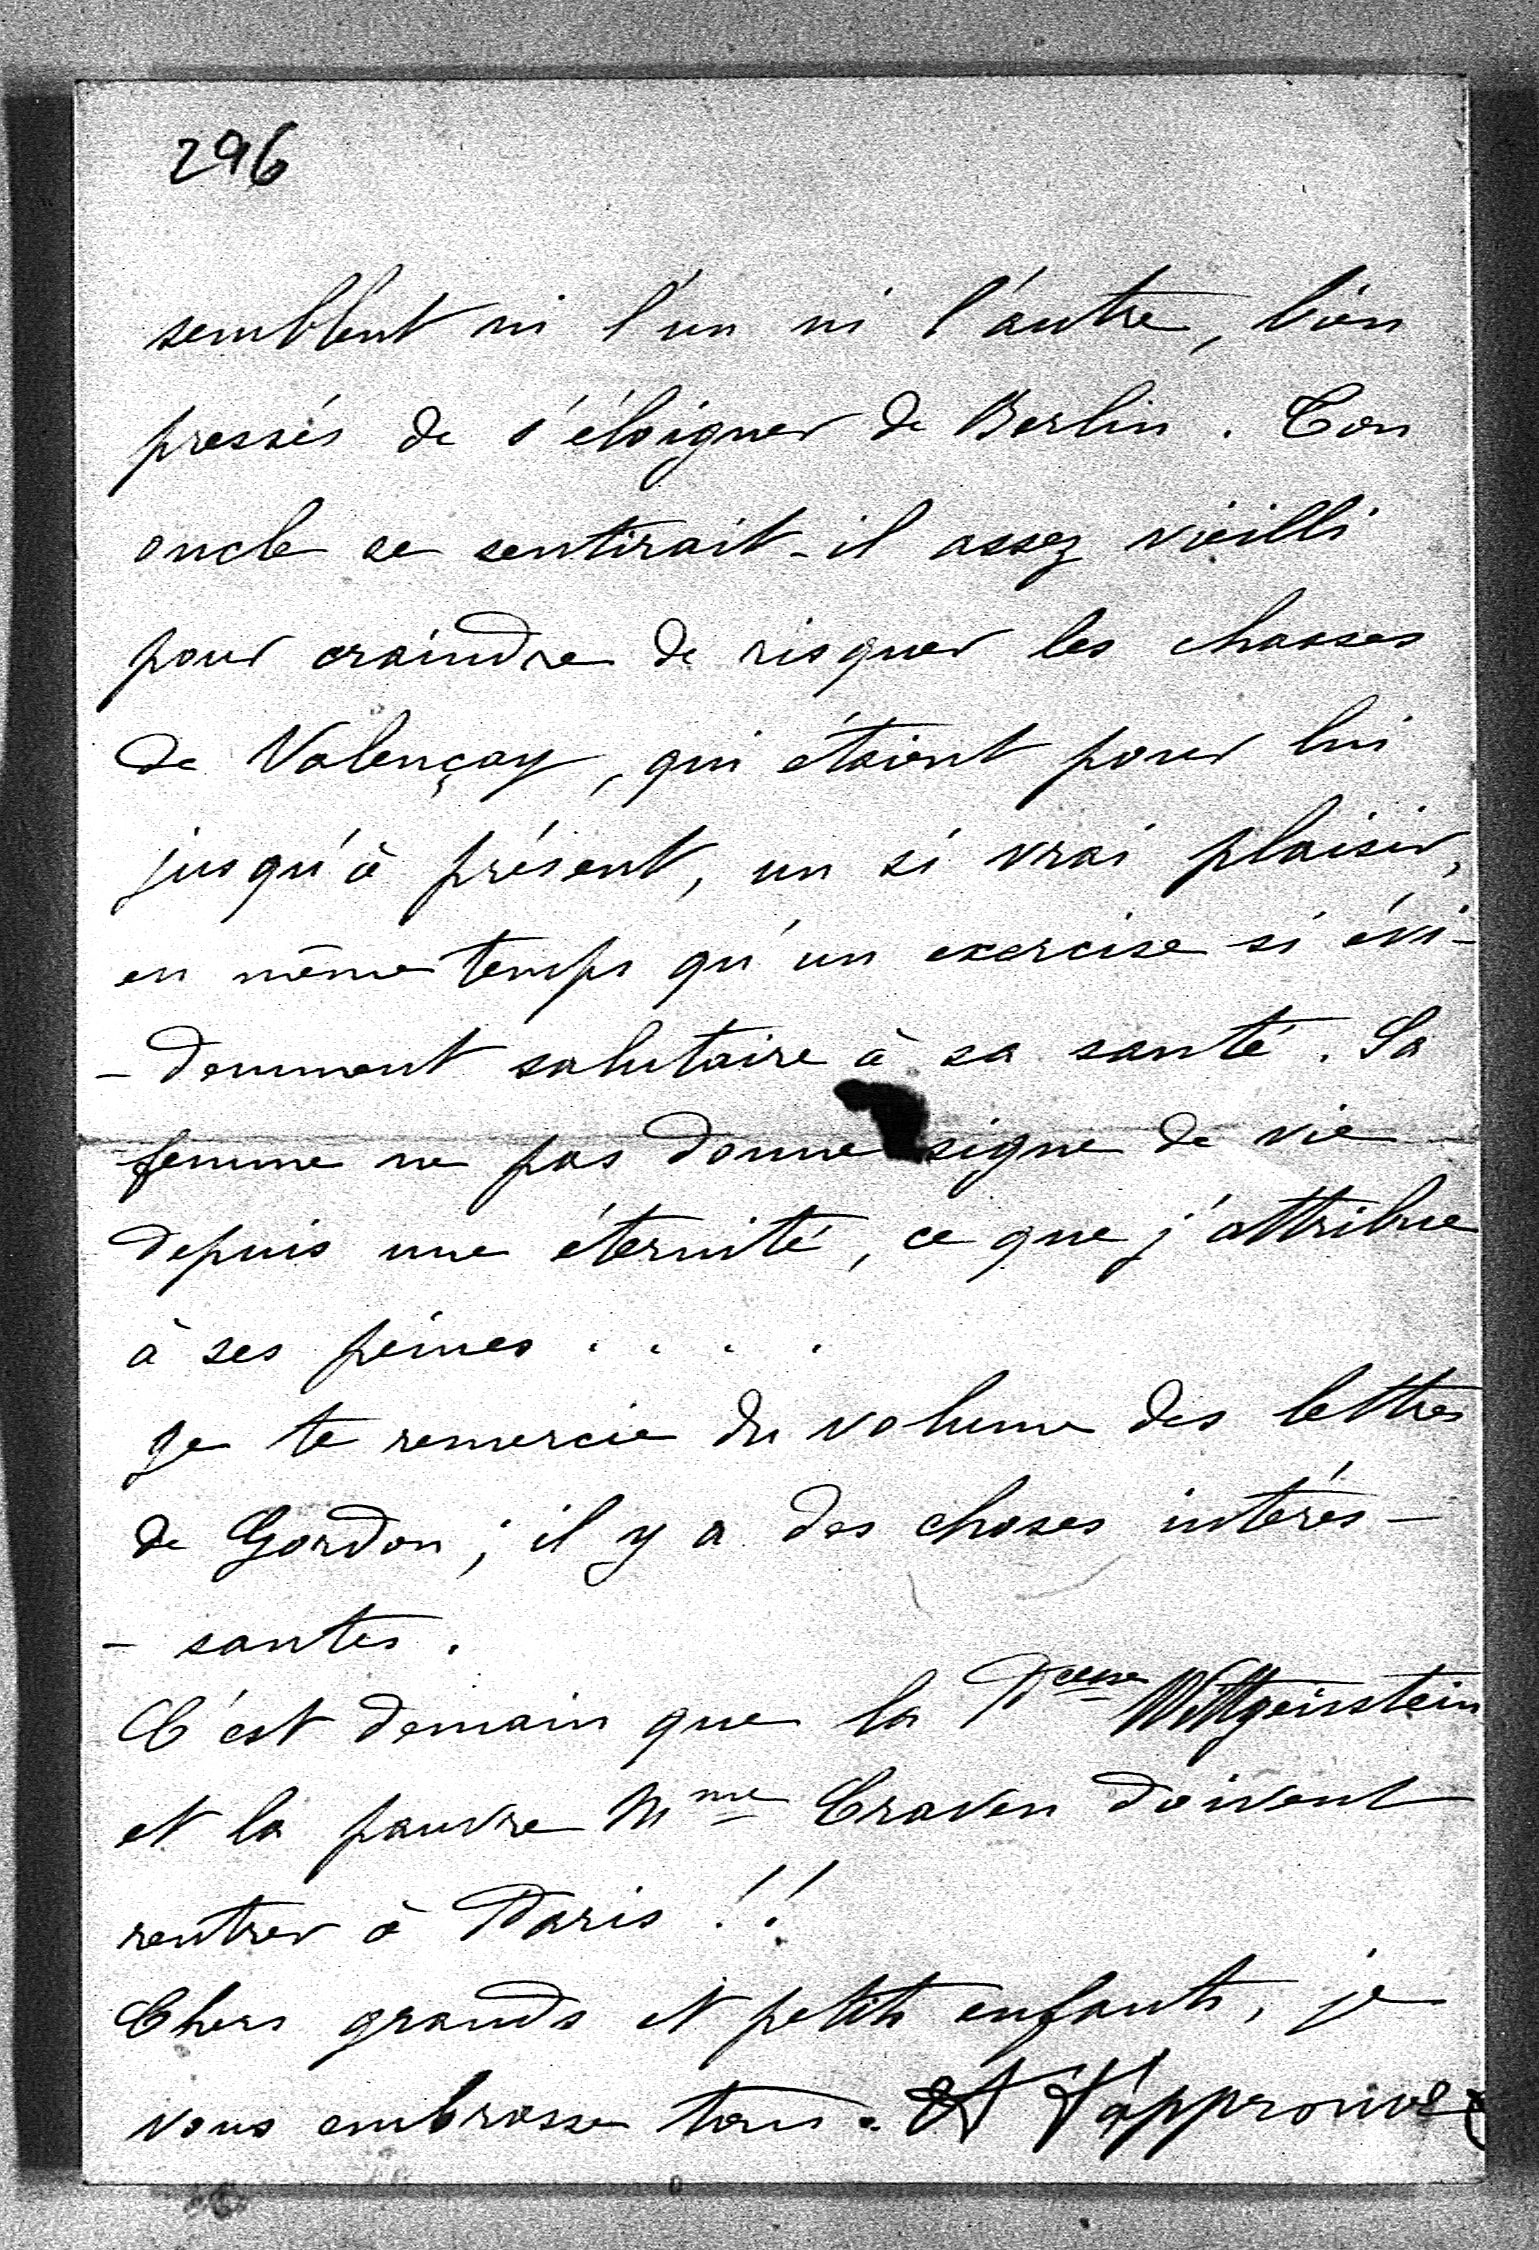 296
semblent ni l'un ni l'autre, bien
pressés de s'éloigner de Berlin. Ton
oncle se sentirait-il assez vieilli
pour craindre de risquer les chasses
de Valençay, qui étaient pour lui
jusqu'à présent, un si vrai plaisir,
en même temps qu'un exercise si évi-
- demment salutaire à sa santé. Sa
femme ne pas donne signe de vie
depuis une éternité, ce que j'attribue
à ses peines . . . .
Je te remercie du volume des lettres
de Gordon; il y a des choses intéres-
- santes.
C'est demain que la Pcesse Wittgenstein
et la pauvre Mme Craven doivent
rentrer à Paris !!
Chers grands et petits enfants, je
vous embrasse tous. Et j'approuve